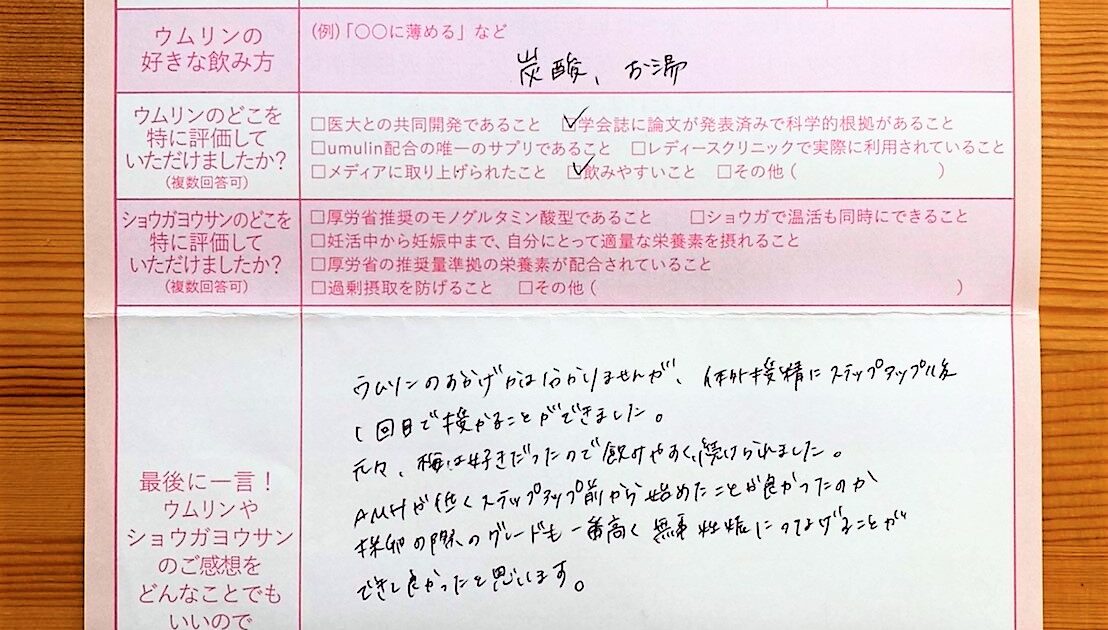 ウムリンの
好きな飲み方
(例)「〇〇に薄める」など
炭酸、お湯
ウムリンのどこを
特に評価して
いただけましたか?
(複数回答可)
□医大との共同開発であること ☑学会誌に論文が発表済みで科学的根拠があること
□umulin配合の唯一のサプリであること □レディースクリニックで実際に利用されていること
□メディアに取り上げられたこと ☑飲みやすいこと □その他( )
ショウガヨウサンのどこを
特に評価して
いただけましたか?
(複数回答可)
□厚労省推奨のモノグルタミン酸型であること □ショウガで温活も同時にできること
□妊活中から妊娠中まで、自分にとって適量な栄養素を摂れること
□厚労省の推奨量準拠の栄養素が配合されていること
□過剰摂取を防げること □その他( )
最後に一言!
ウムリンや
ショウガヨウサン
のご感想を
どんなことでも
いいので
ウムリンのおかげかは分かりませんが、体外授精にステップアップ後
1回目で授かることができました。
元々、梅は好きだったので飲みやすく、続けられました。
AMHが低くステップアップ前から始めたことが良かったのか
採卵の際のグレードも一番高く無事妊娠につなげることが
でき良かったと思います。